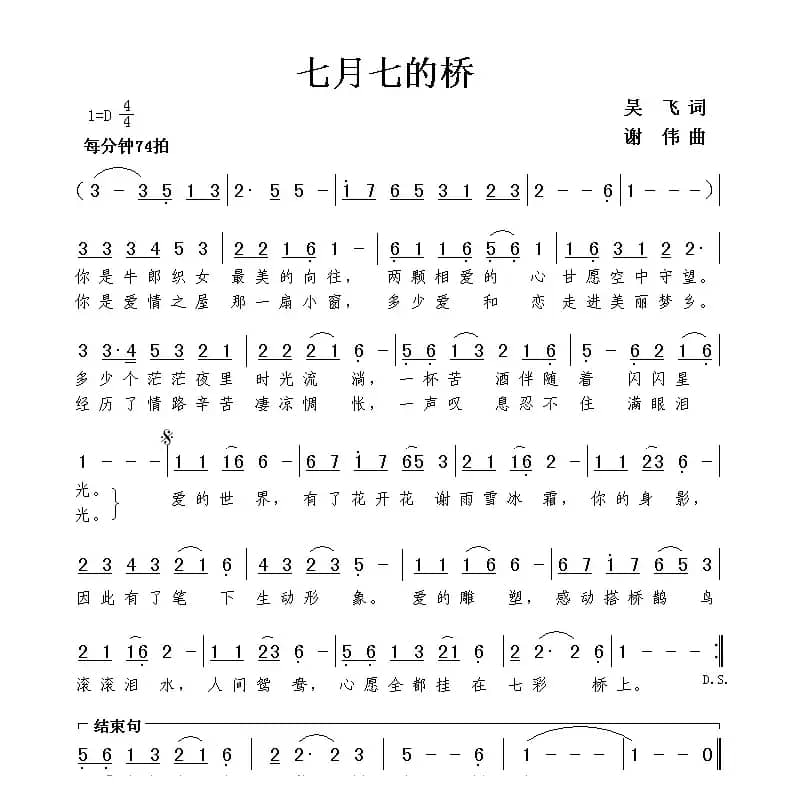 七月七的桥
1=D 4/4
吴 飞 词
每分钟74拍
谢 伟 曲
( 3 - 3 5 1 3 | 2· 5 5 - | 1 7 6 5 3 1 2 3 | 2 - - 6 | 1 - - - )
3 3 3 4 5 3 | 2 2 1 6 1 - | 6 1 1 6 5 6 1 | 1 6 3 1 2 2·
你是牛郎织女 最美的向往， 两颗相爱的 心 甘愿空中守望。
你是爱情之屋 那一扇小窗， 多少爱 和 恋 走进美丽梦乡。
3 3·4 5 5 3 2 1 | 2 2 2 1 6 - | 5 6 1 3 2 1 6 | 5 - 6 6 2 1 6
多少个茫茫夜里 时光流 淌， 一杯苦 酒伴随 着 闪闪星
经历了情路辛苦 凄凉惆 怅， 一声叹 息忍不 住 满眼泪
1 - - - | 1 1 1 6 6 - | 6 7 1 7 6 5 3 | 2 2 1 6 2 - | 1 1 2 3 6 -
光。 爱的世 界， 有了花开花 谢雨雪冰 霜， 你的身 影，
光。
2 3 4 3 2 1 2 6 | 4 3 2 3 5 - | 1 1 1 6 6 - | 6 7 1 7 6 5 3
因此有了笔 下 生动形 象。 爱的雕 塑， 感动搭桥鹊 鸟
2 1 1 6 2 - | 1 1 2 3 6 - | 5 6 1 3 2 1 6 | 5 - 2· 6 | 1 - - - :|
滚滚泪 水， 人间鸳 鸯， 心愿全都挂 在 七彩 桥上。
D.S.
结束句
5 6 1 3 2 1 6 | 2· 2 3 | 2· 6 1 - | 1 - - - | 1 - - 0